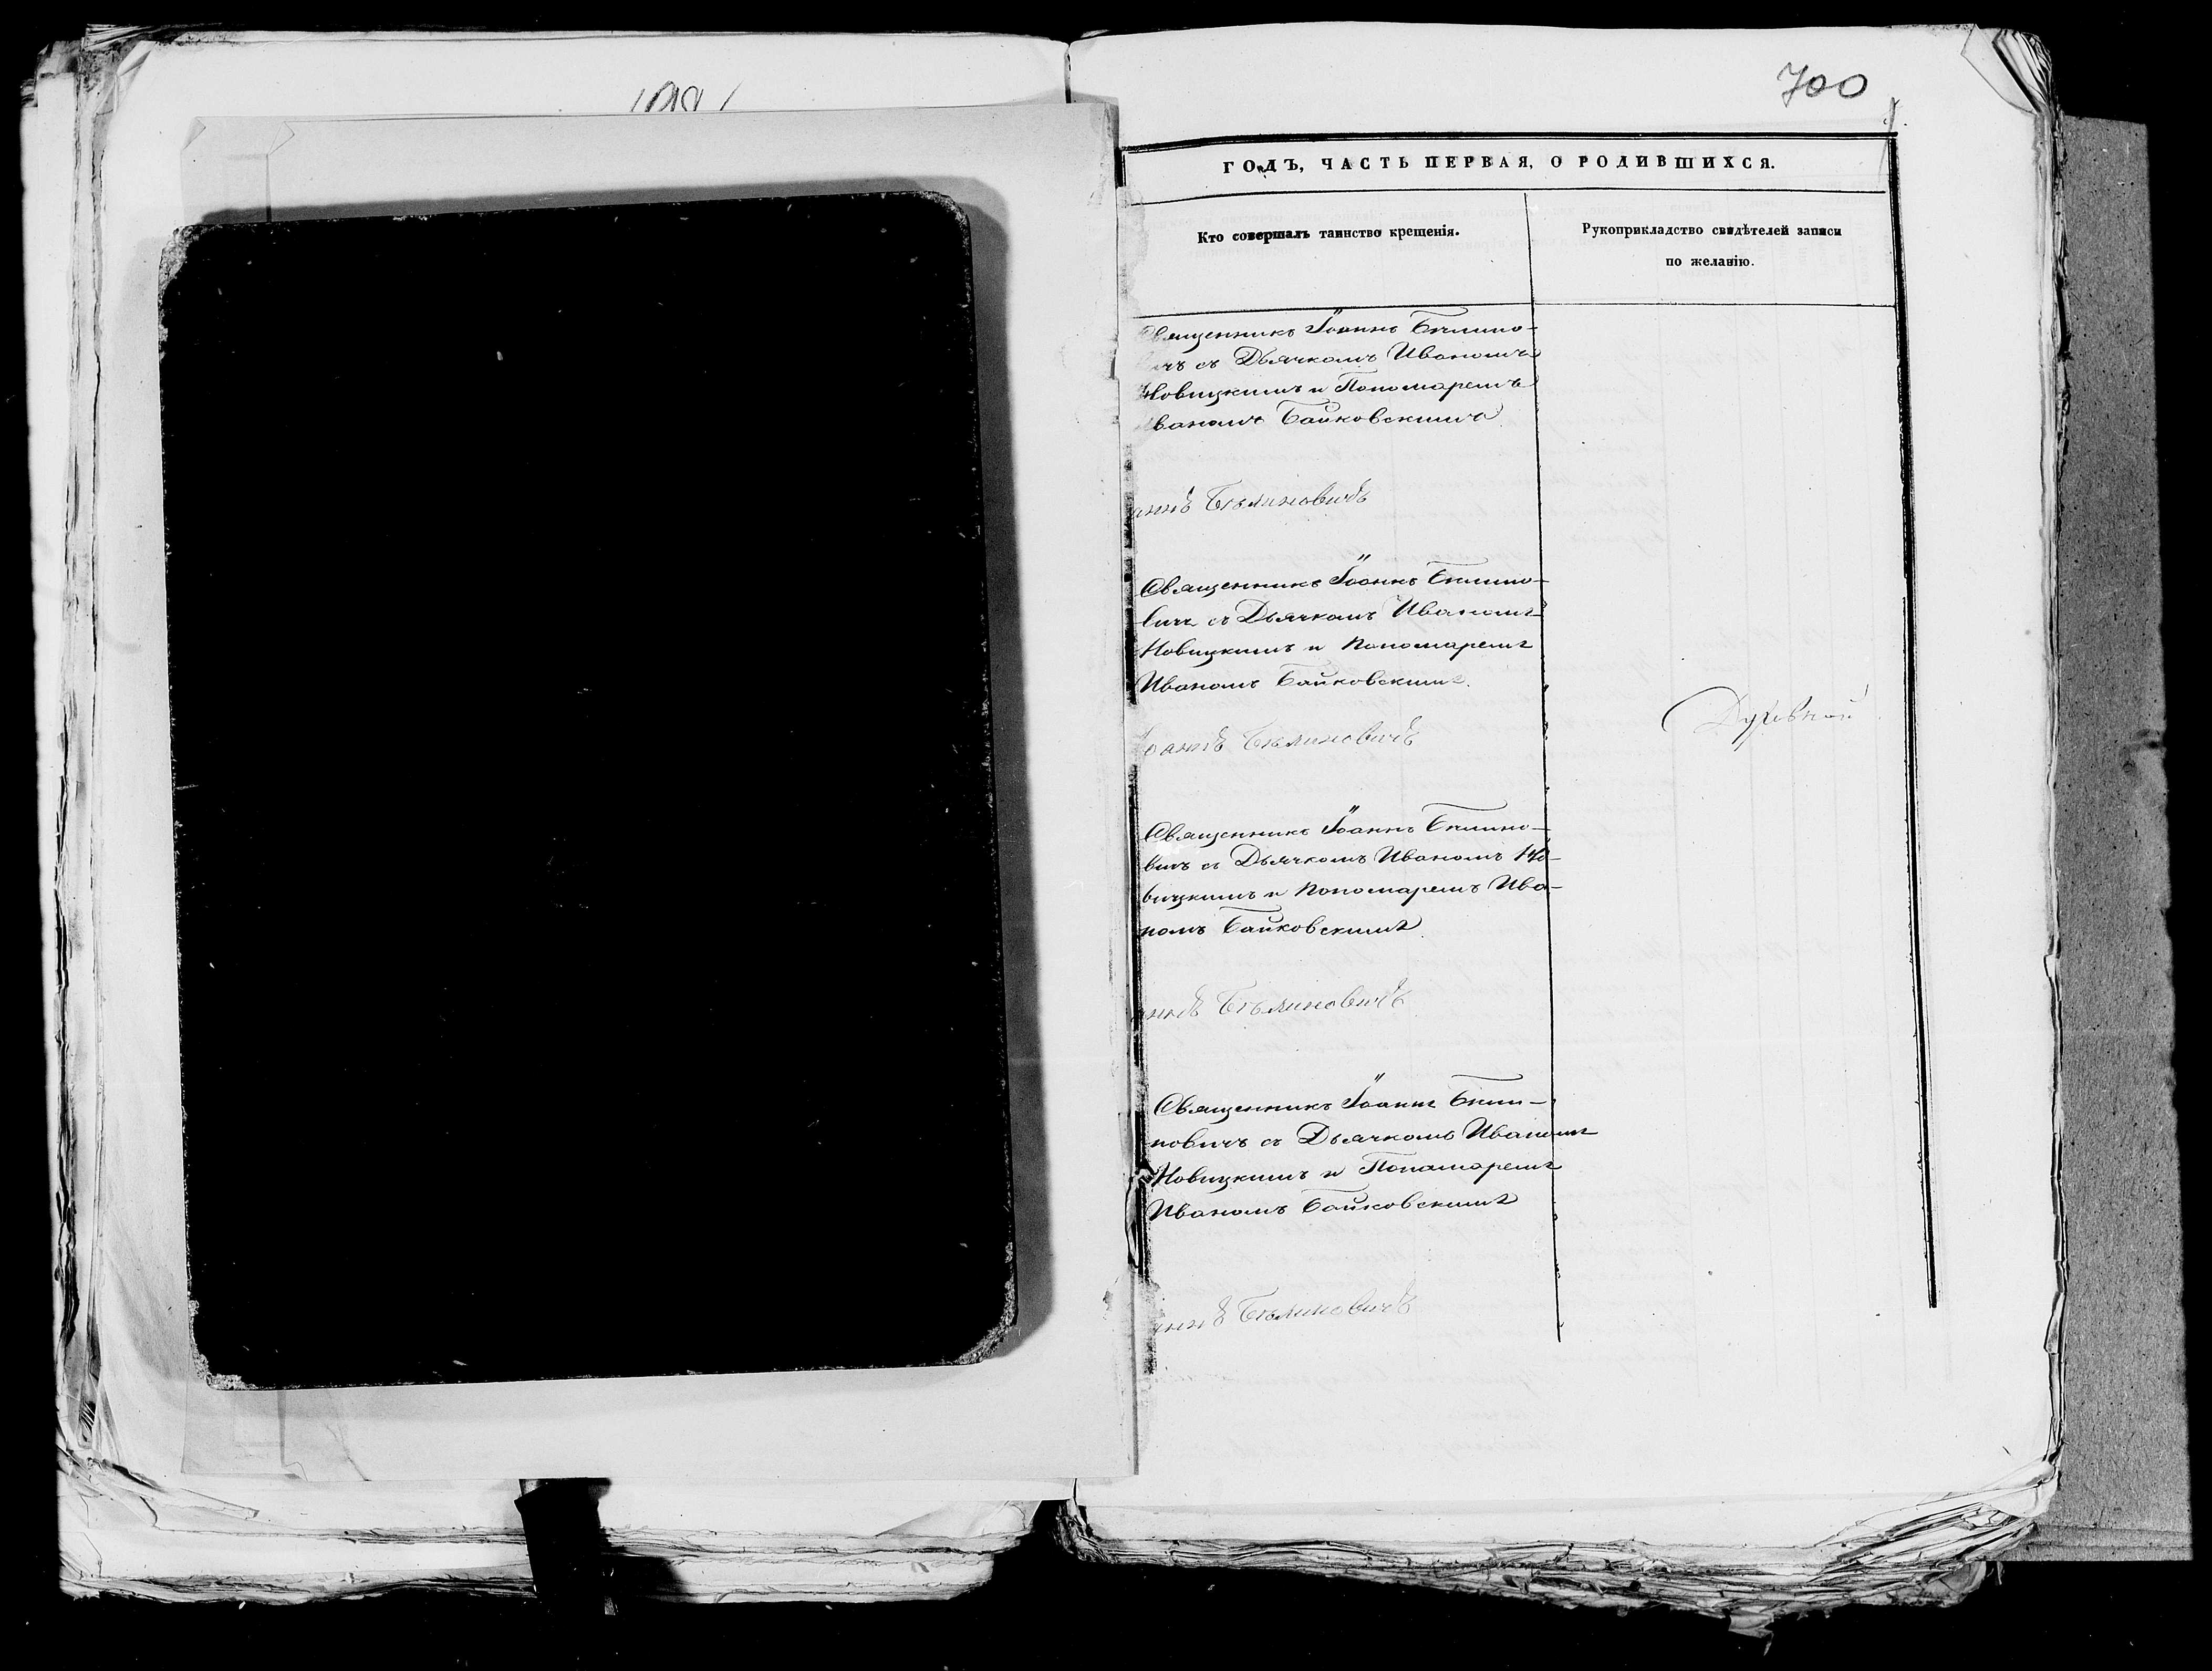 700
ГОДЪ, ЧАСТЬ ПЕРВАЯ, О РОДИВШИХСЯ.
Кто совершалъ таинство крещенія.
Рукоприкладство свидѣтелей записи
по желанію.
Священникъ Іоаннъ Бѣлино-
вичъ съ Дьячкомъ Иваномъ
Новицкимъ и Пономаремъ
Иваномъ Байковскимъ
аннъ Бѣлиновичъ
Священникъ Іоаннъ Бѣлино-
вичъ съ Дьячкомъ Иваномъ
Новицкимъ и Пономаремъ
Иваномъ Байковскимъ.
Духовной
Іоаннъ Бѣлиновичъ
Священникъ Іоаннъ Бѣлино-
вичъ съ Дьячкомъ Иваномъ Но-
вицкимъ и Пономаремъ Ива-
номъ Байковскимъ
аннъ Бѣлиновичъ
Священникъ Іоаннъ Бѣли-
новичъ съ Дьячкомъ Иваномъ
Новицкимъ и Пономаремъ
Иваномъ Байковскимъ
аннъ Бѣлиновичъ